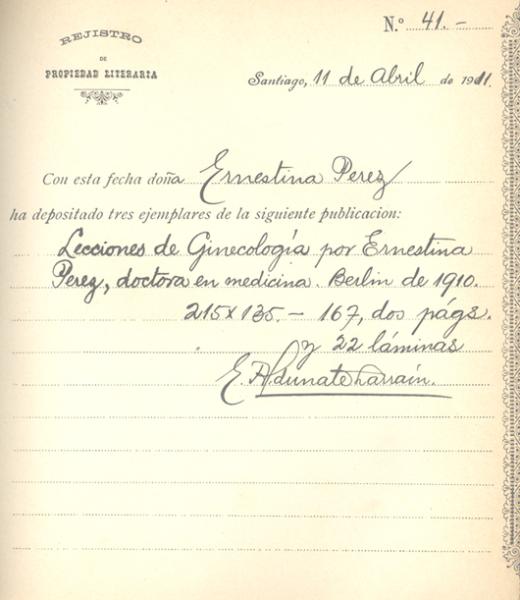 N.º 41.-
REJISTRO
DE
PROPIEDAD LITERARIA
Santiago, 11 de Abril de 1911.
Con esta fecha doña Ernestina Perez
ha depositado tres ejemplares de la siguiente publicacion:
Lecciones de Ginecología por Ernestina
Perez, doctora en medicina. Berlin de 1910.
215x135.- 167, dos págs.
y 22 láminas
E. Aldunate Larraín.